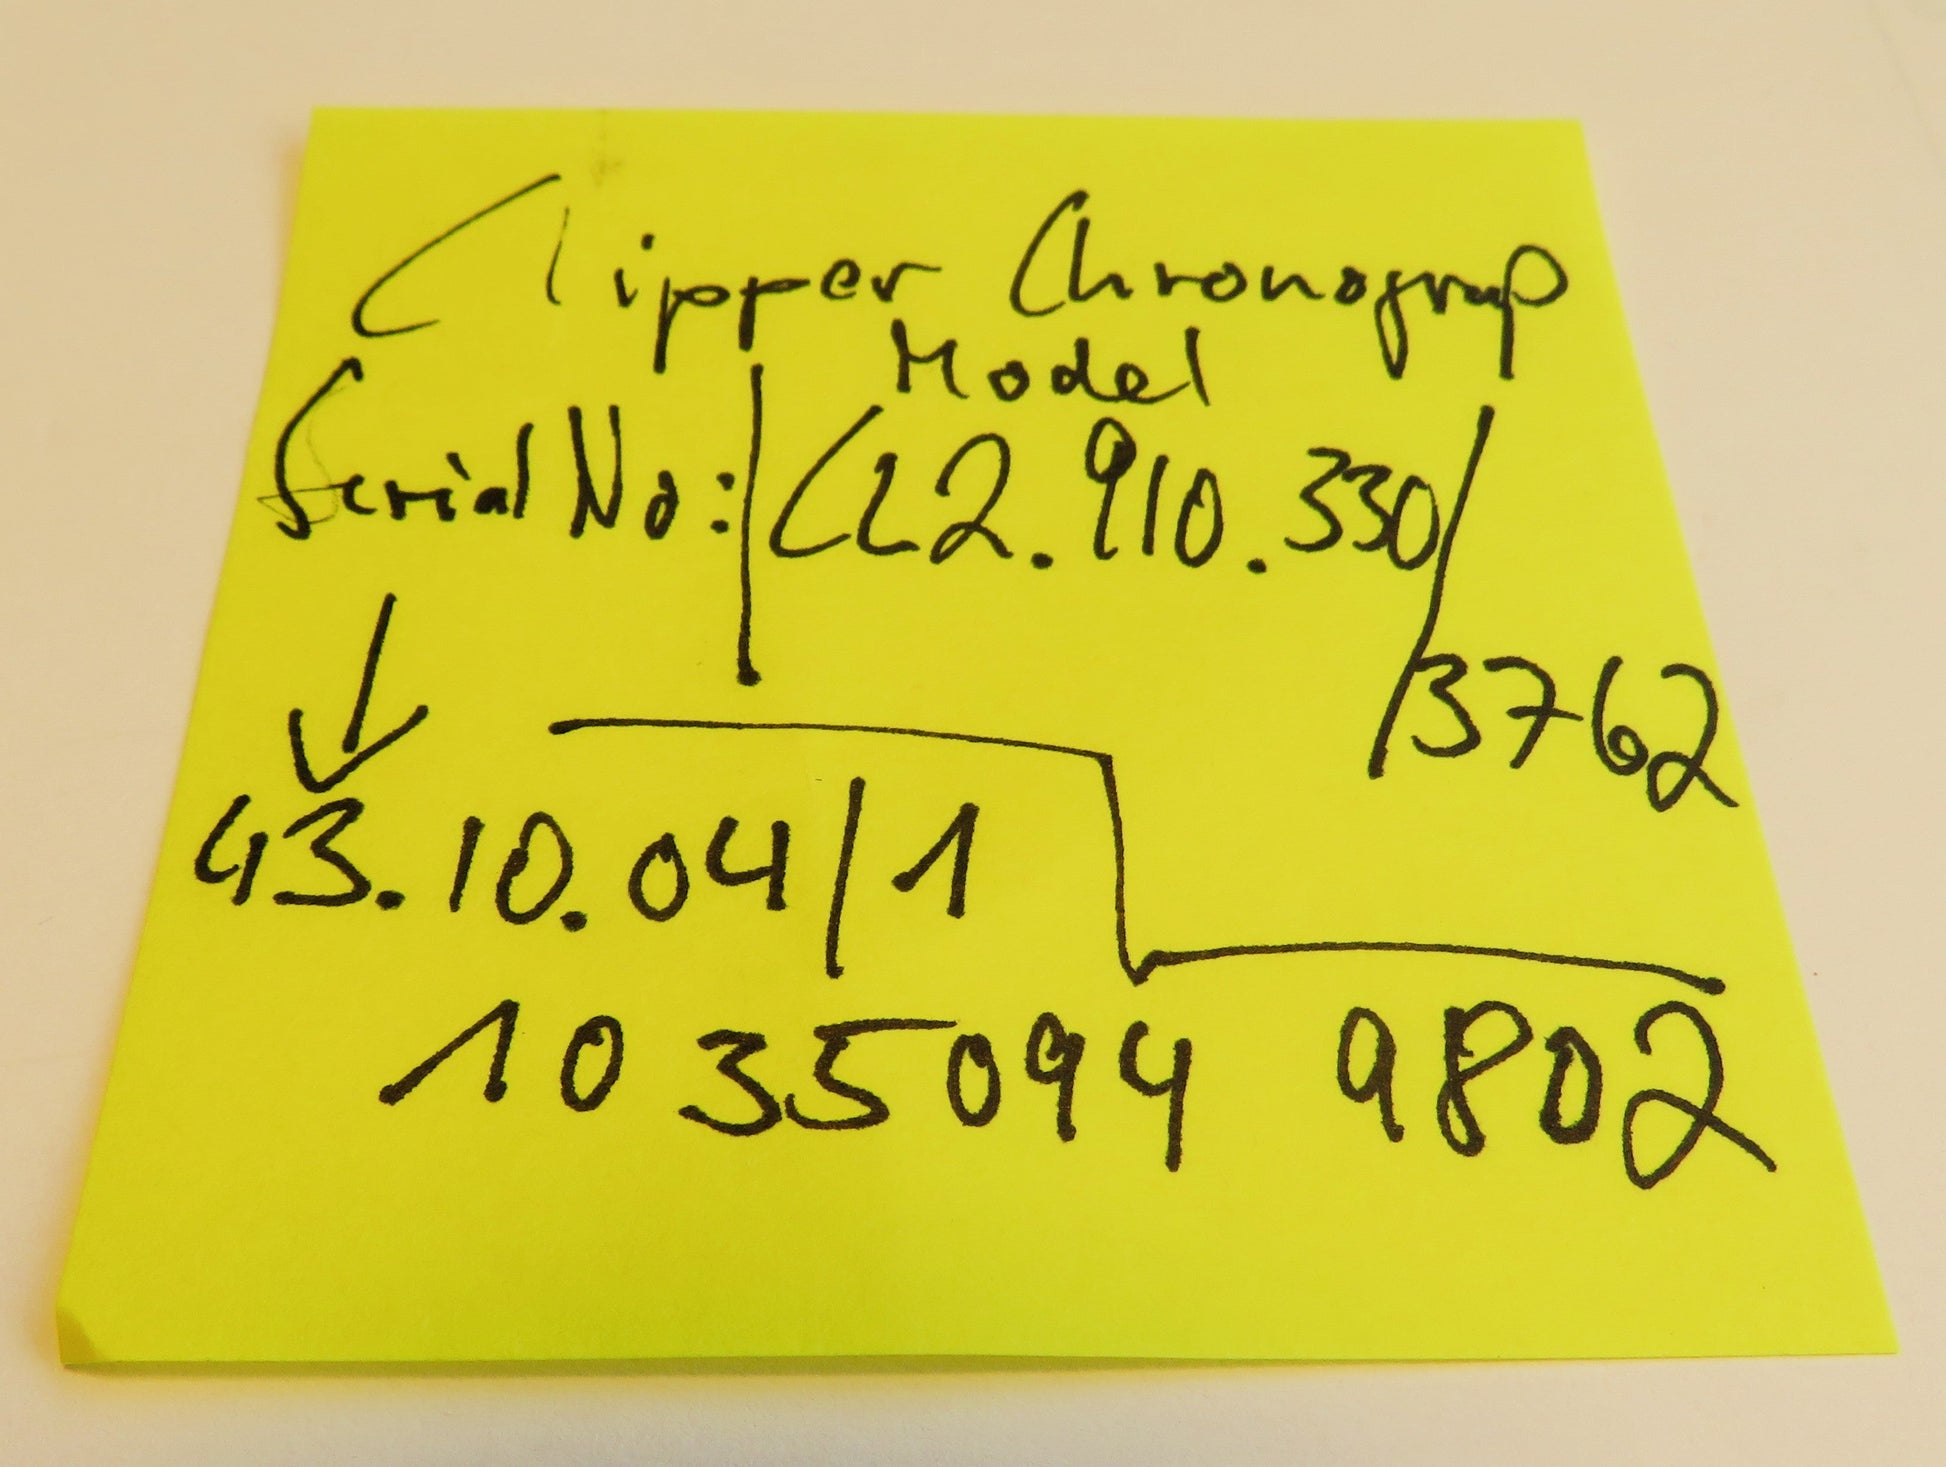 Clipper Chronograp
Model
Serial No: CL2.910.330/3762
43.10.04/1
1035094 9802